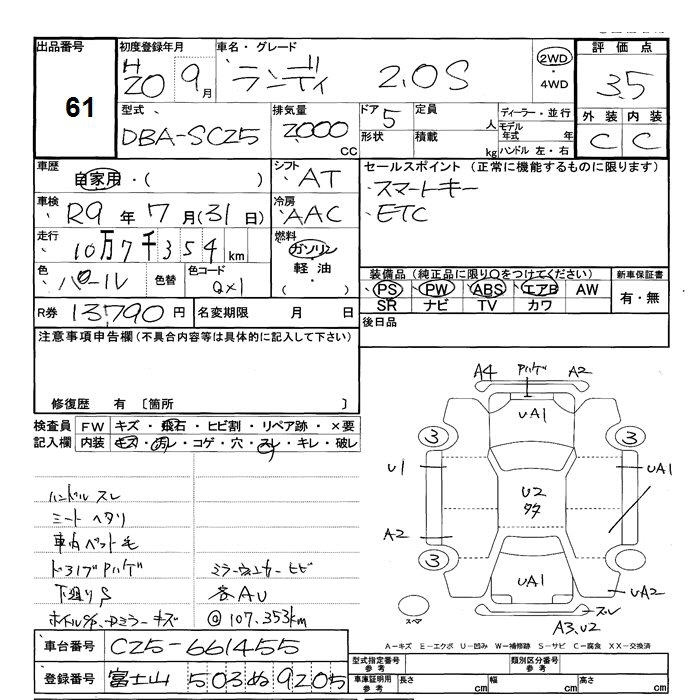 出品番号 61
初度登録年月 H20 9月
車名・グレード ランディ 2.0S
2WD・4WD
評価点 3.5
外装 内装
C C
型式 DBA-SC25
排気量 2000 CC
ドア 5
形状
定員 人
積載 kg
ディーラー・並行
モデル年式 年
ハンドル 左・右
車歴 自家用・( )
シフト AT
セールスポイント (正常に機能するものに限ります)
スマートキー
ETC
車検 R9年7月(31日)
冷房 AAC
走行 10万7千354km
燃料 ガソリン
軽油・( )
色 パール 色替
色コード QX1
装備品 (純正品に限り○をつけてください)
PS PW ABS エアB AW
SR ナビ TV カワ
新車保証書
有・無
R券 13790円
名変期限 月 日
後日品
注意事項申告欄 (不具合内容等は具体的に記入して下さい)
修復歴 有 〔箇所 〕
検査員記入欄
FW キズ・飛石・ヒビ割・リペア跡・×要
内装 キズ・汚レ・コゲ・穴・スレ・キレ・破レ
ハンドル スレ
シート ヘタリ
車内ペット毛
ドライブPハゲ
下廻りS
ミラーウィンカー ヒビ
各AU
@107,353km
A4 Pハゲ A2
UA1
3 3
U1 UA1
U2
多
A2
3
UA1 UA2
スペア
スレ
A3,U2
A-キズ E-エクボ U-凹み W-補修跡 S-サビ C-腐食 XX-交換済
車台番号 C25-661455
登録番号 富士山 503 ぬ 9205
型式指定番号 参考
類別区分番号 参考
車庫証明用 参考
長さ cm 幅 cm 高さ cm